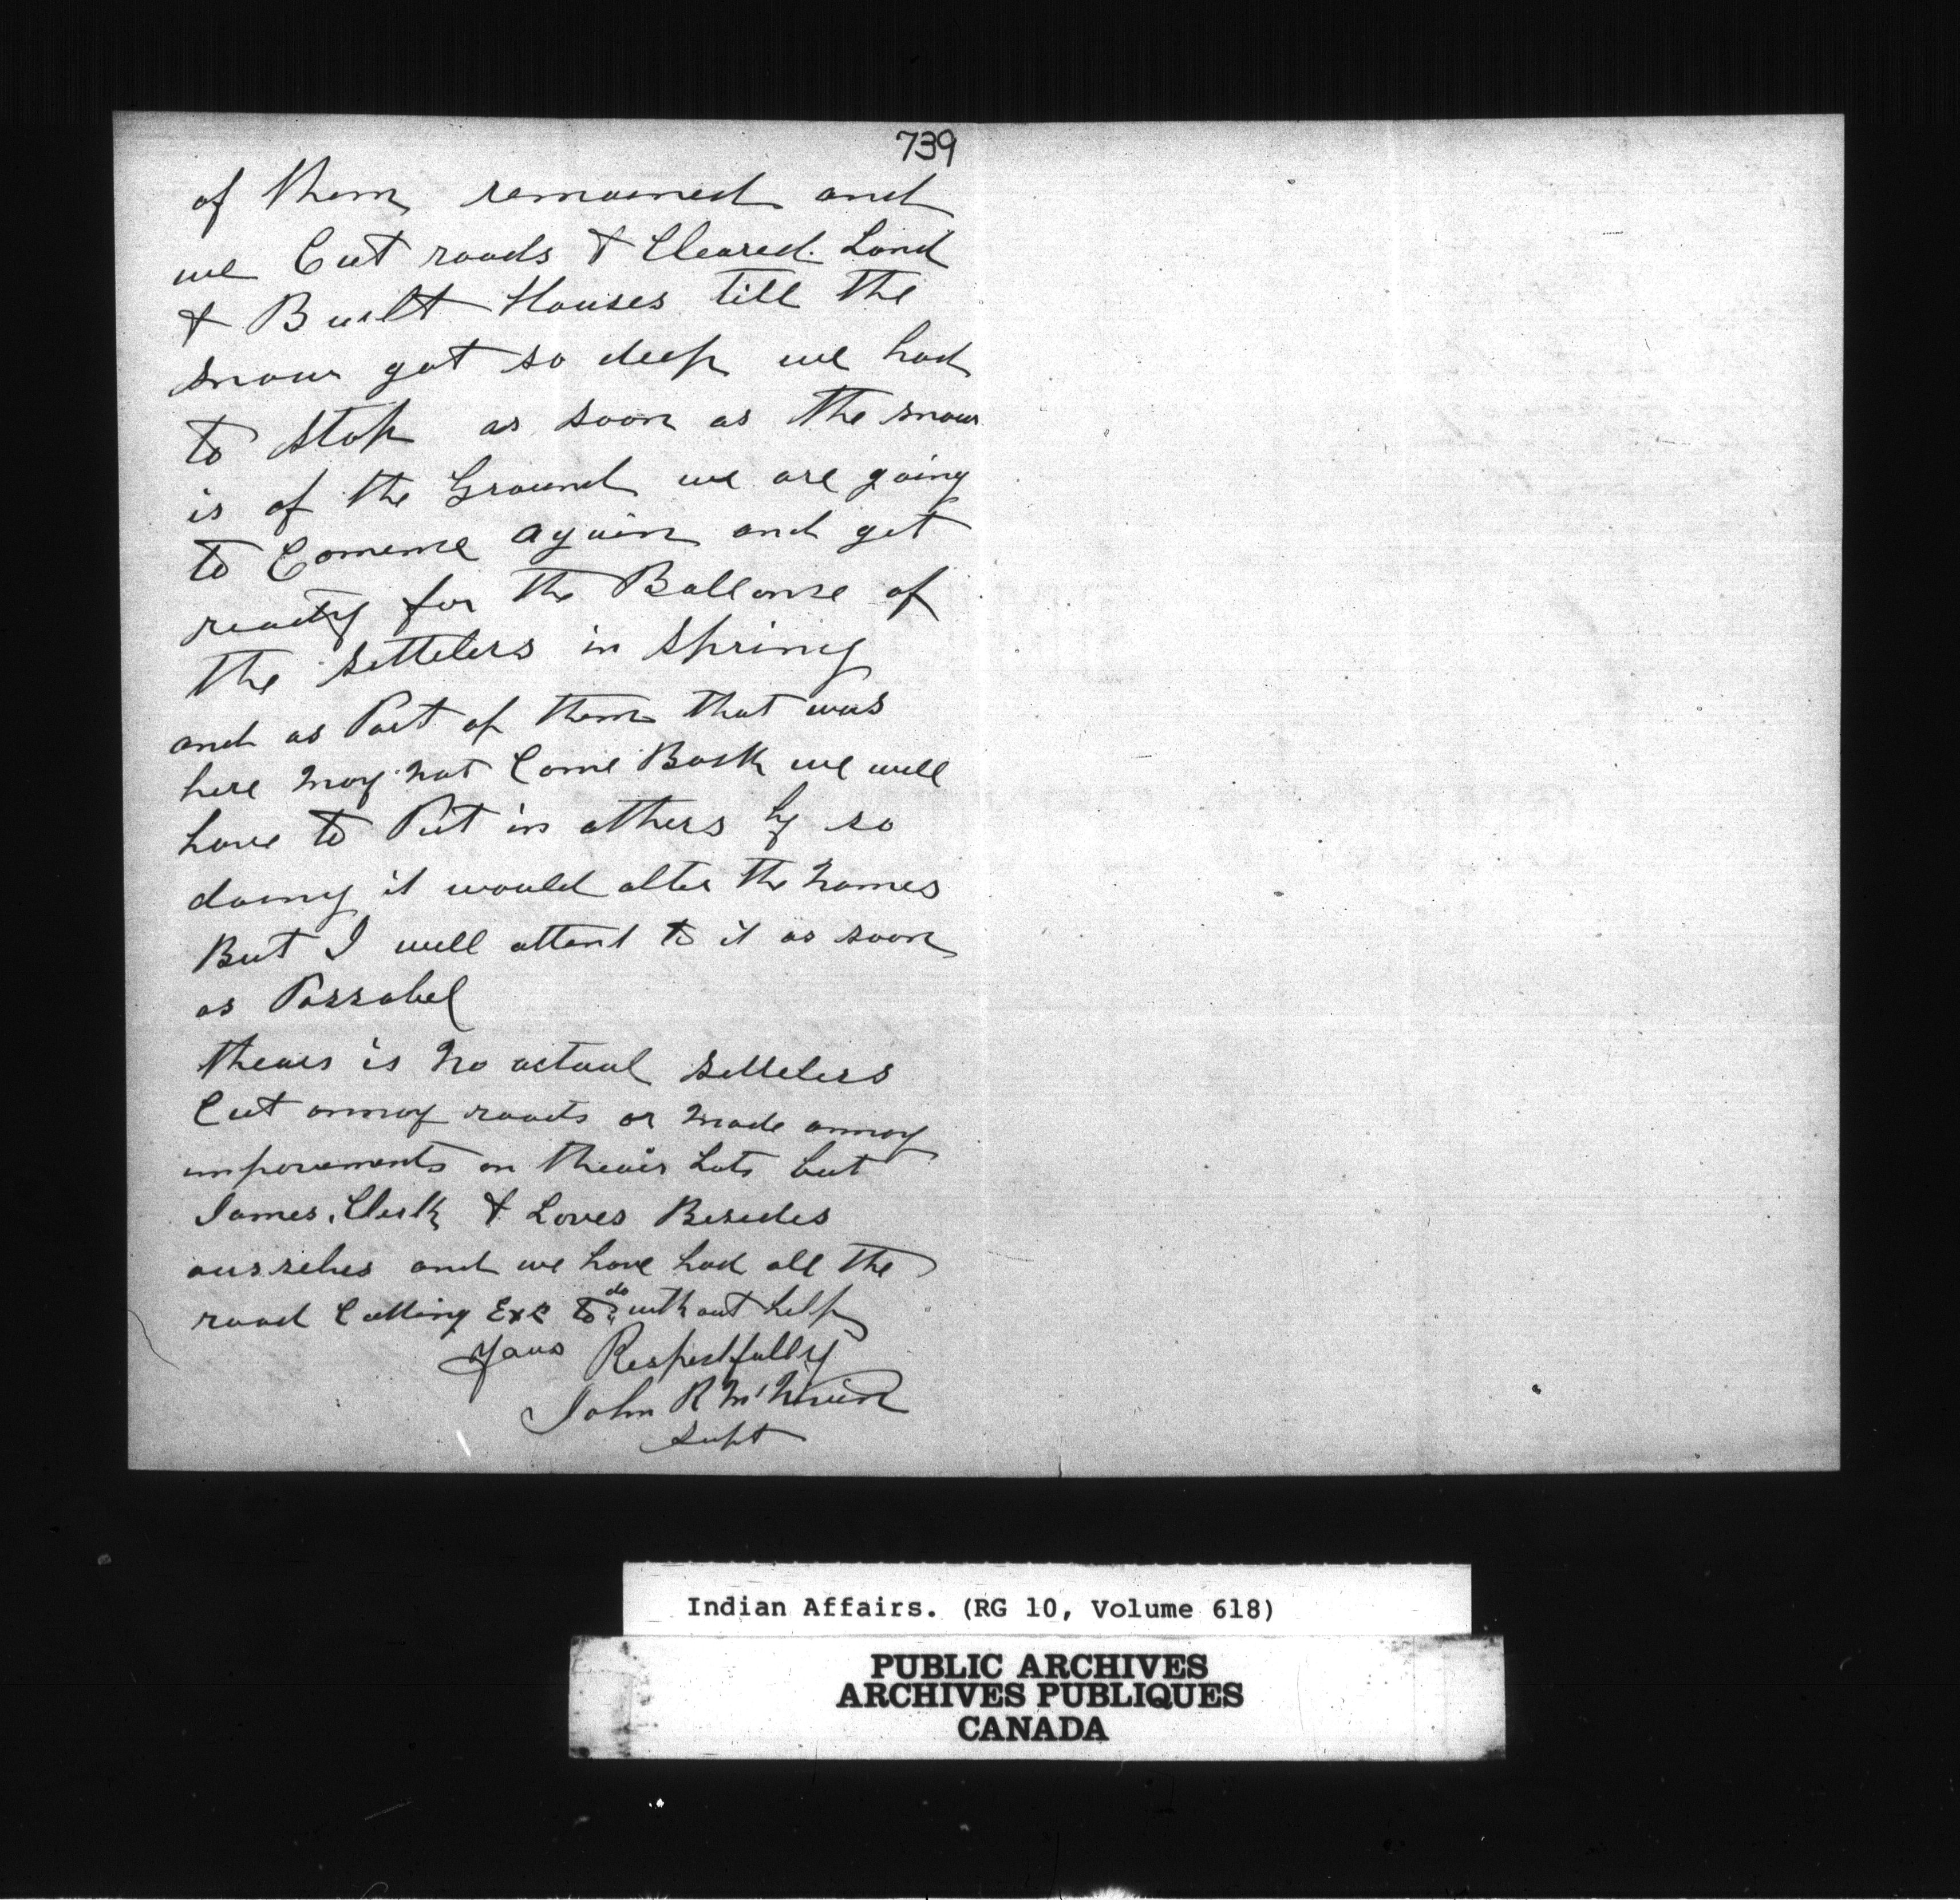 739
of them remained and
we Cut roads & Cleared Land
& Built Houses till the
snow got so deep we had
to stop as soon as the snow
is of the Ground we are going
to Comence again and get
ready for the Ballanse of
the settelers in Spring
and as Part of them that was
here may not Come Back we will
have to Put in others by so
doing it would alter the names
But I will attend to it as soon
as Possabel
theair is no actual settelers
Cut anney roads or made anney
improvements on theair Lots but
James, Clerk & Loves Besides
ourselves and we have had all the
road Cutting Exc to do without help
Yours Respectfully
John R
Supt
Indian Affairs. (RG 10, Volume 618)
PUBLIC ARCHIVES
ARCHIVES PUBLIQUES
CANADA